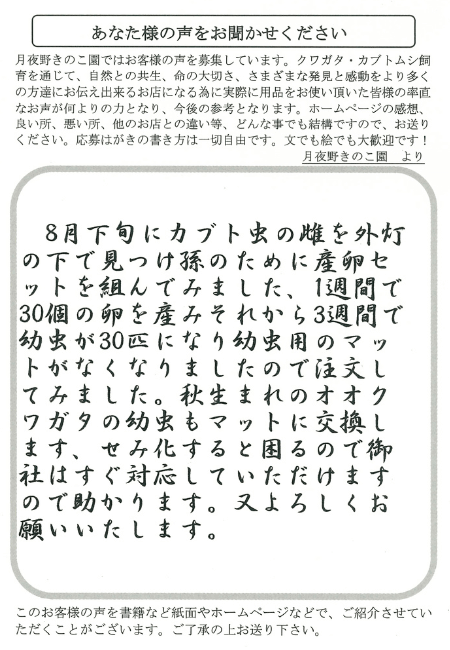 あなた様の声をお聞かせください
月夜野きのこ園ではお客様の声を募集しています。クワガタ・カブトムシ飼
育を通じて、自然との共生、命の大切さ、さまざまな発見と感動をより多く
の方達にお伝え出来るお店になる為に実際に用品をお使い頂いた皆様の率直
なお声が何よりの力となり、今後の参考となります。ホームページの感想、
良い所、悪い所、他のお店との違い等、どんな事でも結構ですので、お送り
ください。応募はがきの書き方は一切自由です。文でも絵でも大歓迎です！
月夜野きのこ園　より
8月下旬にカブト虫の雌を外灯
の下で見つけ孫のために産卵セ
ットを組んでみました、1週間で
30個の卵を産みそれから3週間で
幼虫が30匹になり幼虫用のマッ
トがなくなりましたので注文し
てみました。秋生まれのオオク
ワガタの幼虫もマットに交換し
ます、せみ化すると困るので御
社はすぐ対応していただけます
ので助かります。又よろしくお
願いいたします。
このお客様の声を書籍など紙面やホームページなどで、ご紹介させてい
ただくことがございます。ご了承の上お送り下さい。